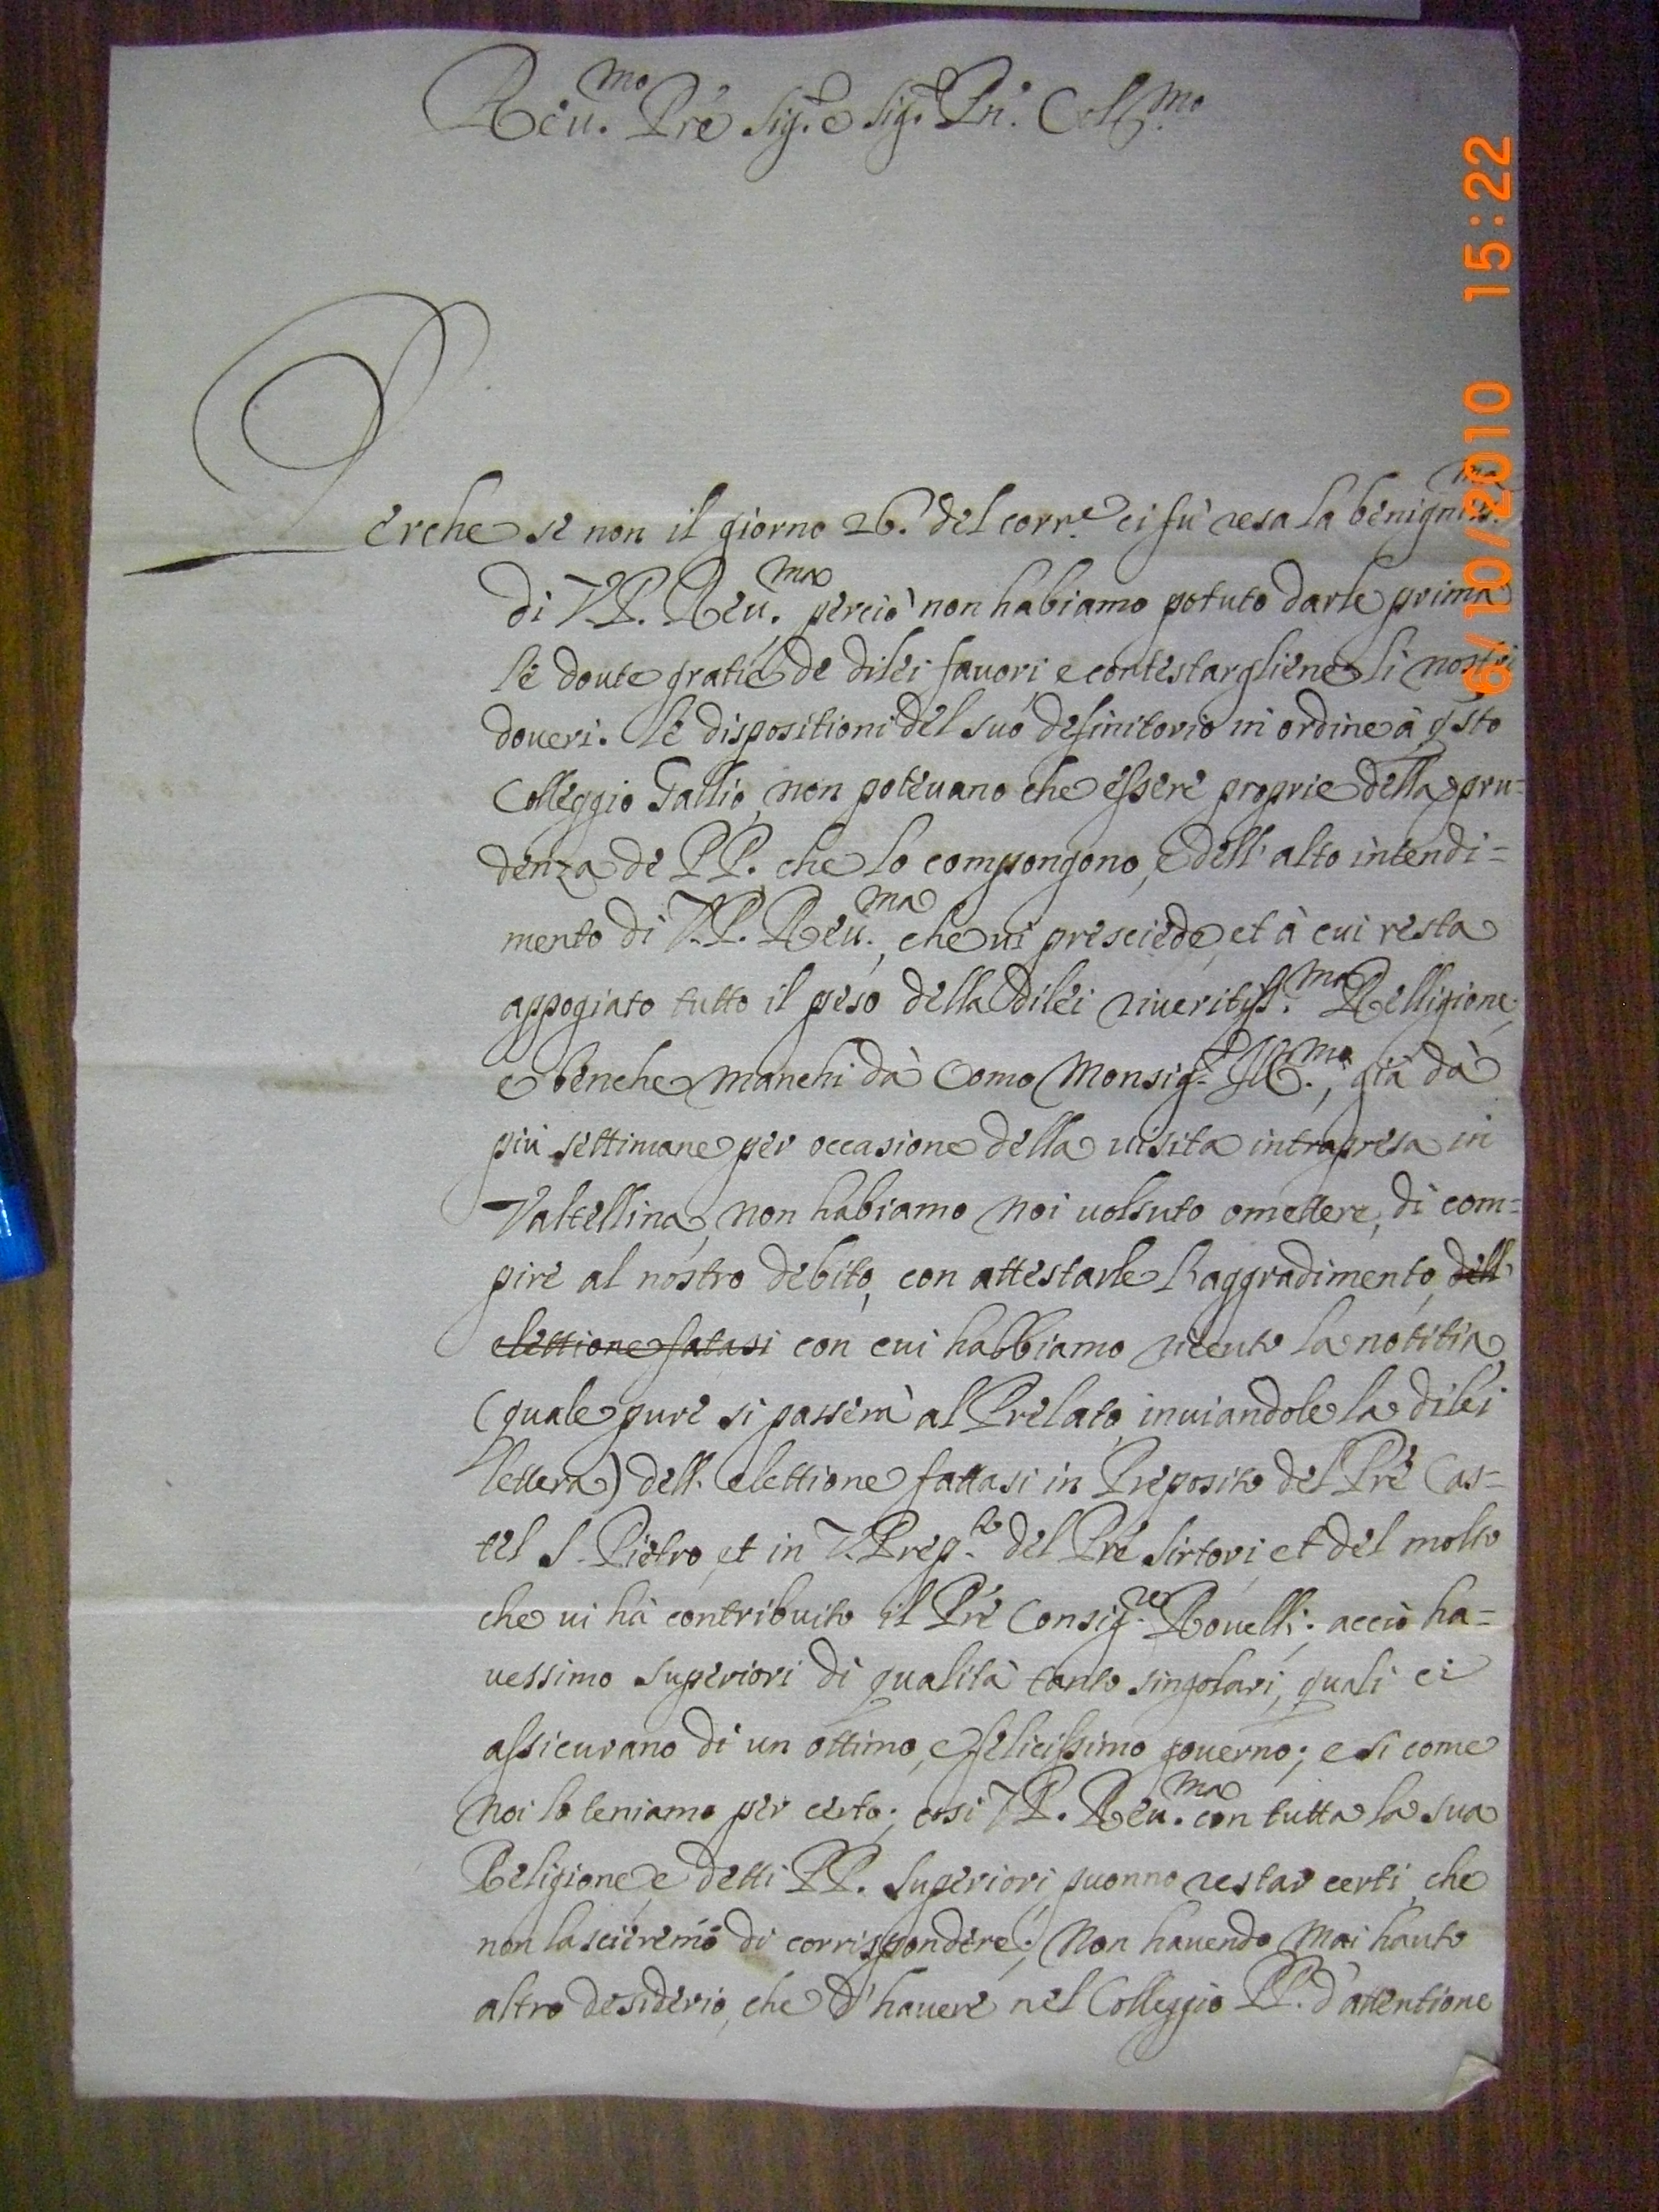 Reu.mo Pre Sig.e e Sig.e Pn. Coll.mo
Perche se non il giorno 26. del corr.e ci fù resa la benignma
di V.P. Reu.ma perciò non habiamo potuto darle prima
le doute gratie de dilei fauori e contestargliene li nostri
doueri. Le dispositioni del suo definitorio in ordine à qsto
Colleggio Gallio, non poteuano che essere proprie della pru=
denza de PP. che lo compongono, e dell' alto intendi=
mento di V.P. Reu.ma, che ui presciede, et à cui resta
appogiato tutto il peso della dilei riueritiss.ma Relligione,
e benche manchi dà Como Monsig.r Ill.mo, già dà
più settimane per occasione della uisita intrapresa in
Valtellina, non habiamo noi uolsuto omettere, di com=
pire al nostro debito, con attestarle l'aggradimento, dell'
elettione fatasi con cui habbiamo riceuto la notitia
(quale pure si passerà al Prelato inuiandole la dilei
lettera) dell' elettione fattasi in Preposito del Pre Cas=
tel S. Pietro, et in V. Prep.to del Pre Sirtori, et del molto
che ui hà contribuito il Pre Consig.re Rouelli; acciò ha=
uessimo superiori di qualità tanto singolari, quali ci
assicurano di un ottimo, e felicissimo gouerno; e si come
noi lo teniamo per certo; cosi V.P. Reu.ma con tutta la sua
Religione, e detti PP. Superiori puonno restar certi, che
non lascieremo di corrispondere; Non hauendo mai hauto
altro desiderio, che d'hauere nel Colleggio PP. d'attentione
6/10/2010 15:22